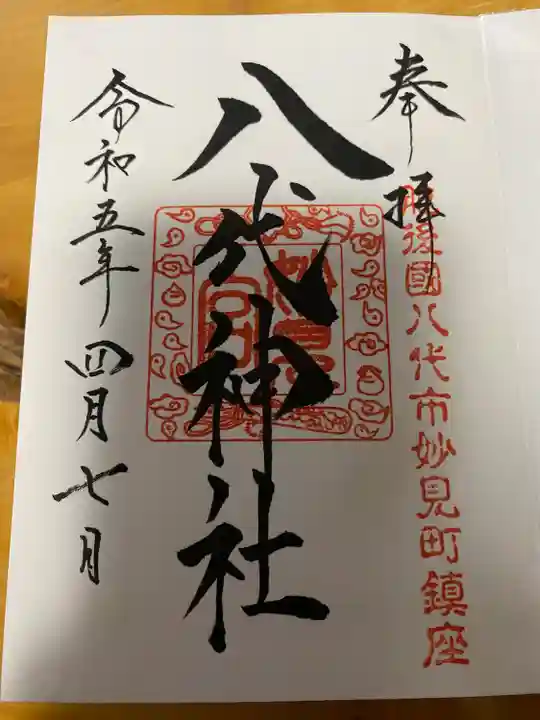 奉拝
肥後國八代市妙見町鎮座
八代神社
妙見宮
令和五年四月七日